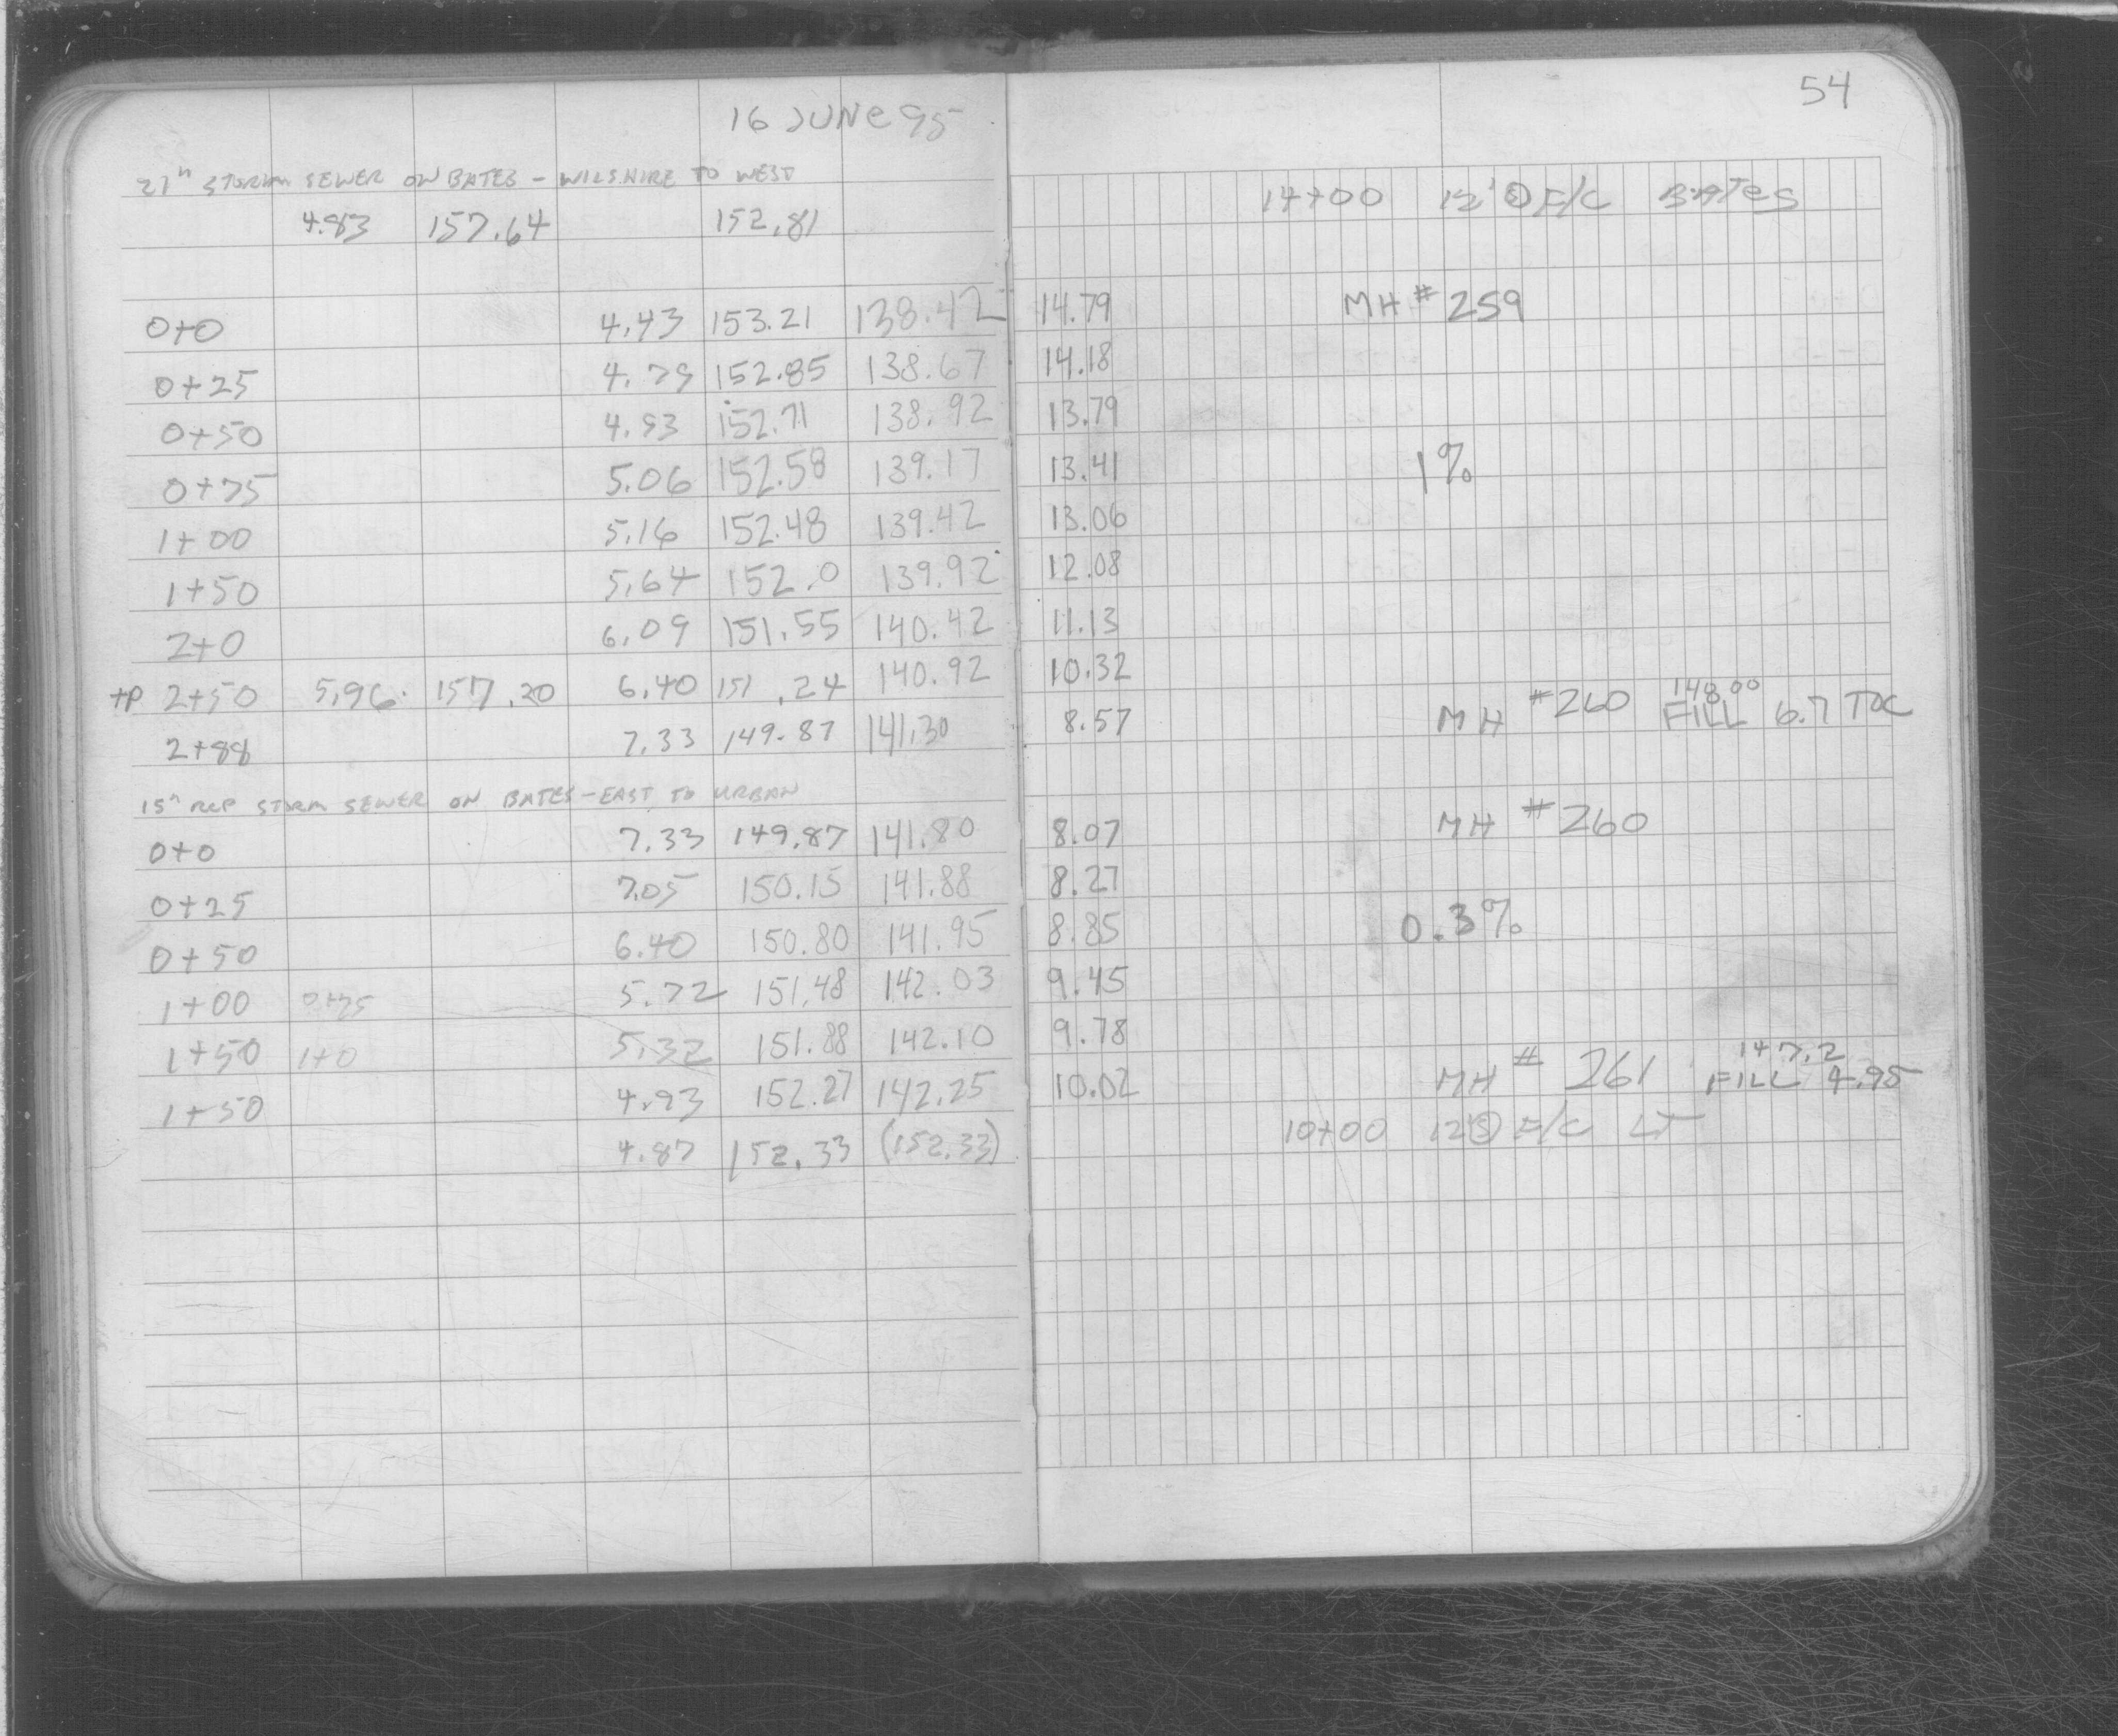 54
16 JUNE 95
27" STORM SEWER ON BATES - WILSHIRE TO WEST
4.83 157.64 152.81 14+00 12' F/C BATES
0+0 4.43 153.21 138.42 14.79 MH # 259
0+25 4.79 152.85 138.67 14.18
0+50 4.93 152.71 138.92 13.79
0+75 5.06 152.58 139.17 13.41 1%
1+00 5.16 152.48 139.42 13.06
1+50 5.64 152.0 139.92 12.08
2+0 6.09 151.55 140.42 11.13
TP 2+50 5.96 157.20 6.40 151.24 140.92 10.32
148.00
2+88 7.33 149.87 141.30 8.57 MH #260 FILL 6.7 TOC
15" RCP STORM SEWER ON BATES - EAST TO URBAN
0+0 7.33 149.87 141.80 8.07 MH #260
0+25 7.05 150.15 141.88 8.27
0+50 6.40 150.80 141.95 8.85 0.3%
1+00 0+75 5.72 151.48 142.03 9.45
1+50 1+0 5.32 151.88 142.10 9.78
147.2
1+50 4.93 152.27 142.25 10.02 MH # 261 FILL 4.95
4.87 152.33 (152.33) 10+00 12 F/C LT